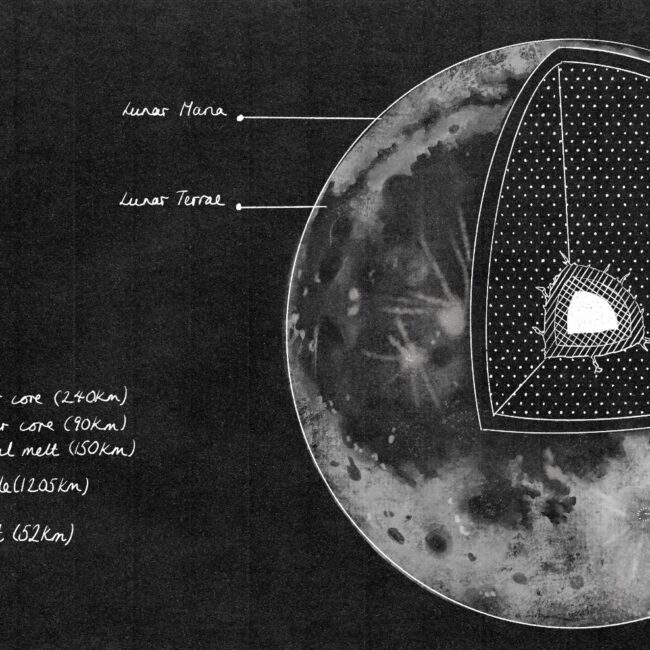 Lunar Maria
Lunar Terrae
r core (240km)
r core (90km)
al melt (150km)
le (1205km)
t (52km)